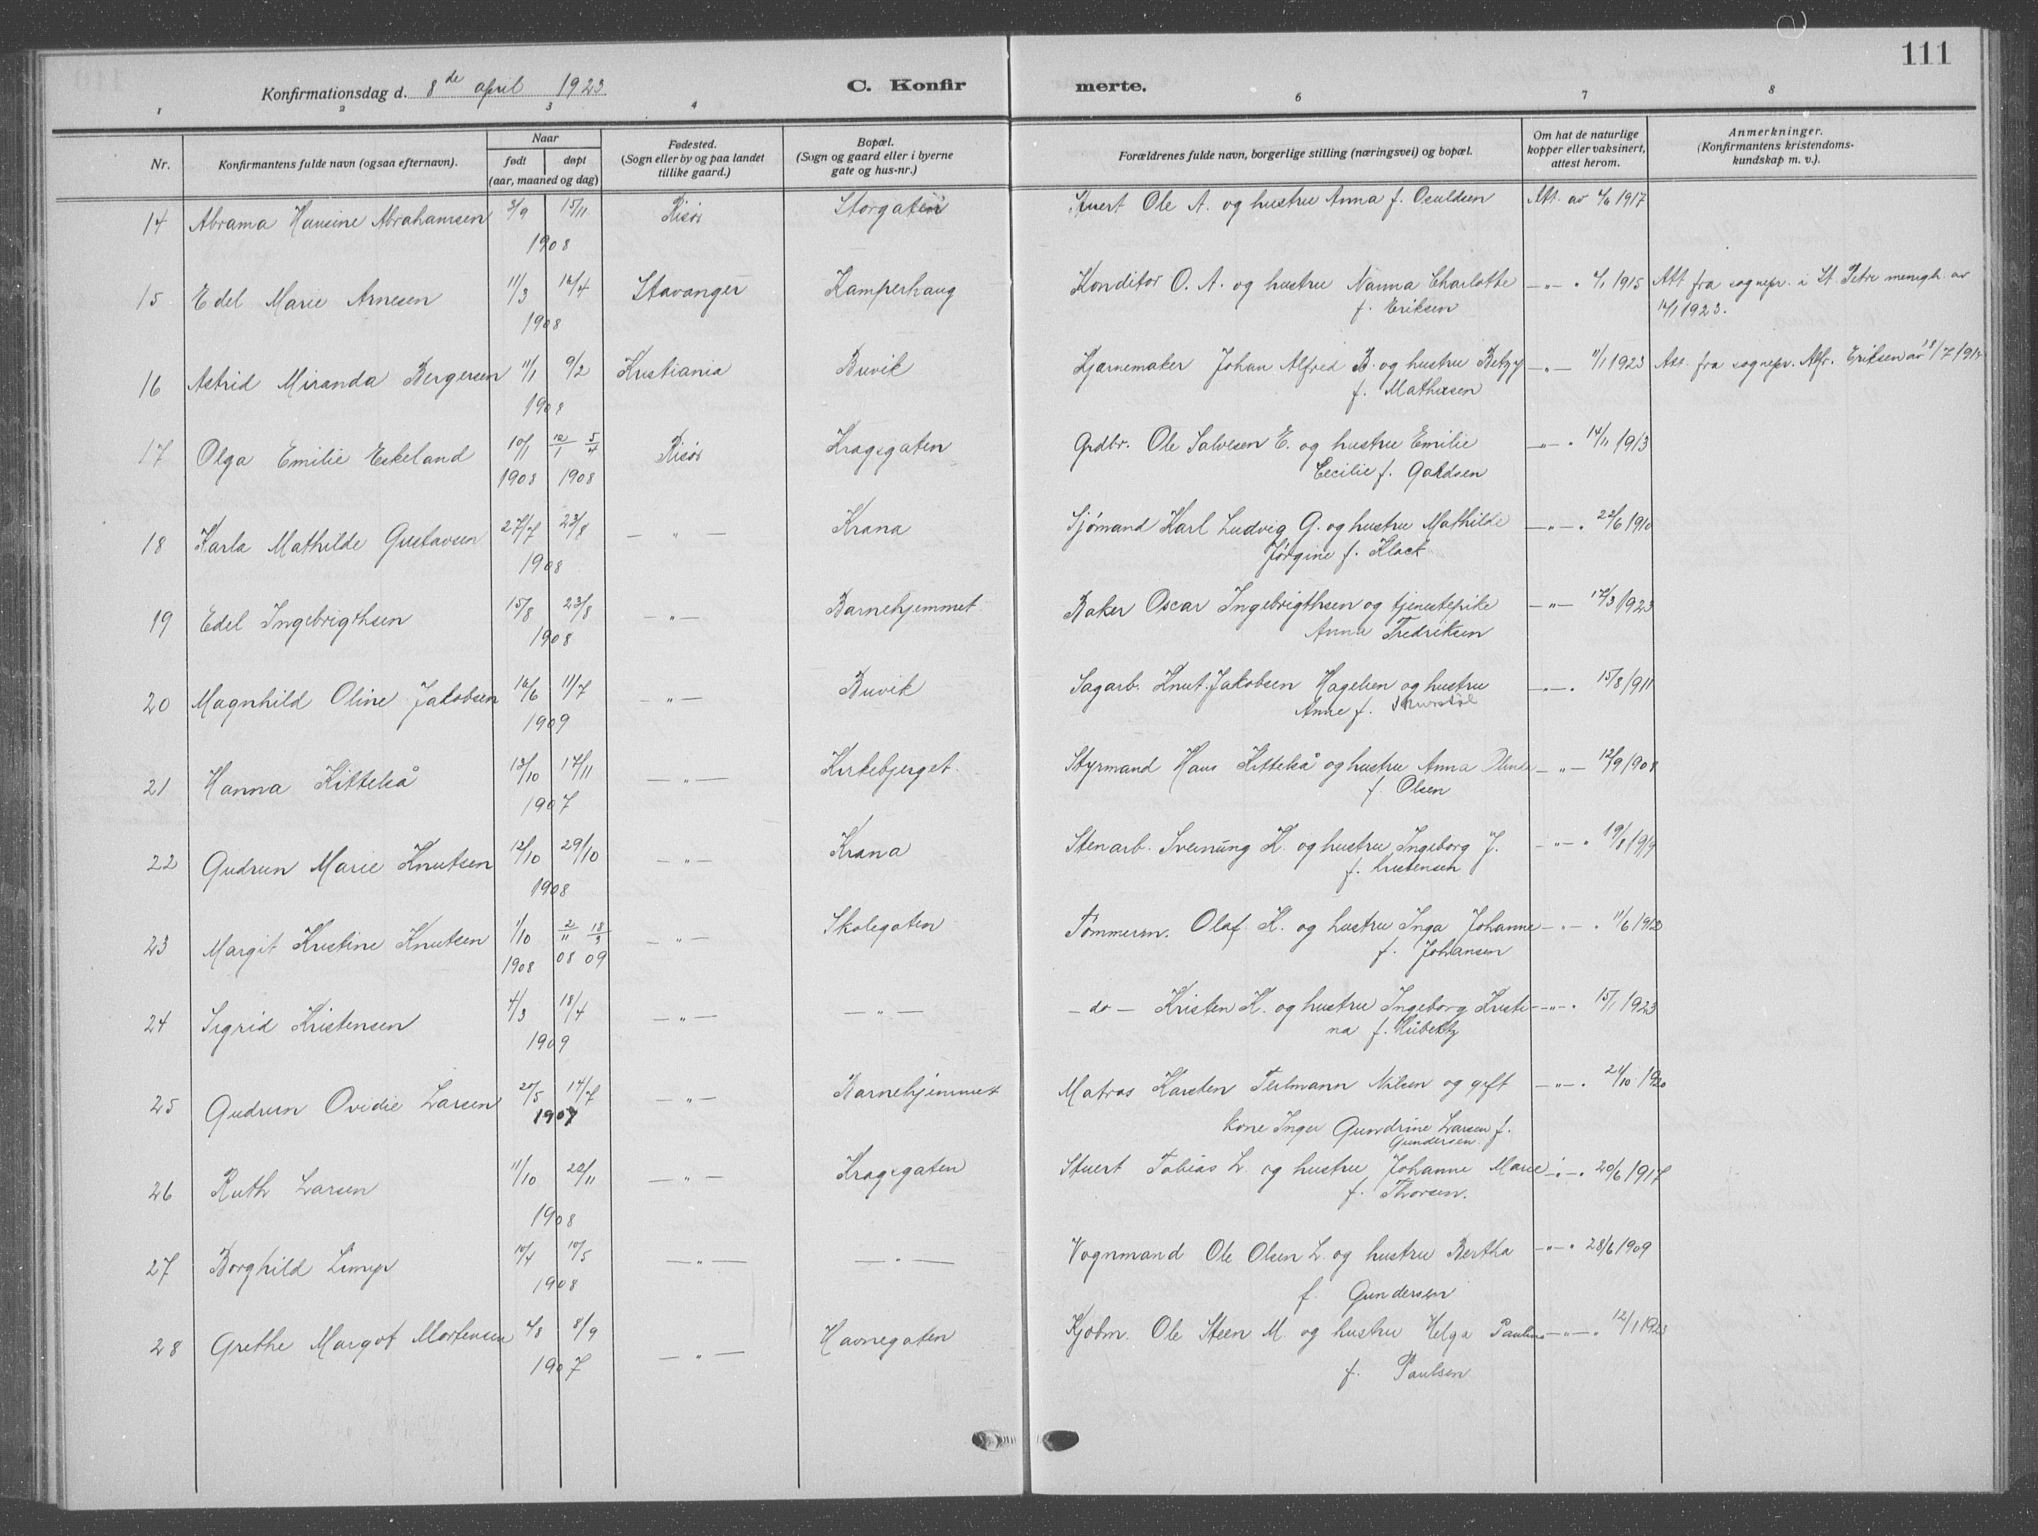 111
Konfirmationsdag d. 8de april 1923
C. Konfir merte.
1 2 3 4 6 7 8
Nr.
Konfirmantens fulde navn (ogsaa efternavn).
Naar
født døpt
(aar, maaned og dag)
Fødested.
(Sogn eller by og paa landet
tillike gaard.)
Bopæl.
(Sogn og gaard eller i byerne
gate og hus-nr.)
Forældrenes fulde navn, borgerlige stilling (næringsvei) og bopæl.
Om hat de naturlige
kopper eller vaksinert,
attest herom.
Anmerkninger.
(Konfirmantens kristendoms-
kundskap m. v.).
14 Abrama Hansine Abrahamsen 3/9 15/11 Risør Storgaten Stuert Ole A. og hustru Anna f. Osuldsen Att. av 4/6 1917
1908
15 Edel Marie Arnesen 11/3 16/4 Stavanger Kamperhaug Konditor O. A. og hustru Nanna Charlotte —"— 4/1 1915 Att fra sognepr. i St. Petri menigh. av
1908 f. Eriksen 14/1 1923.
16 Astrid Miranda Bergersen 11/1 9/2 Kristiania Buvik Kjærnemaker Johan Alfred B. og hustru Betzy —"— 11/1 1923 Att. fra sognepr. Alfr. Eriksen av
1908 f. Mathisen
17 Olga Emilie Eskeland 10/1 12/1 5/4 Risør Kragsgaten Grdbr. Ole Salvesen E. og hustru Emilie —"— 14/11 1913
1908 1908 Cecilie f. Gardsen
18 Karla Mathilde Gustavsen 27/7 23/8 —"— Krana Sjømand Karl Ludvig G. og hustru Mathilde —"— 22/6 1910
1908 Jørgine f. Klack
19 Edel Ingebrigthsen 15/8 23/8 —"— Barnehjemmet Baker Oscar Ingebrigthsen og tjenestepike —"— 12/3 1923
1908 Anna Fredriksen
20 Magnhild Oline Jakobsen 16/6 11/7 —"— Buvik Sagarb. Knut Jakobsen Hagelien og hustru —"— 15/8 1911
1909 Anne f.
21 Hanna Kittelså 13/10 17/11 —"— Kirkebjerget. Styrmand Hans Kittelså og hustru Anna Oline —"— 12/9 1908
1907 f. Olsen
22 Gudrun Marie Knutsen 12/10 29/10 —"— Krana Stenarb. Sveinung K. og hustru Ingeborg J. —"— 19/8 1919
1908 f. Kristensen
23 Margit Kristine Knutsen 1/10 2/11 18/3 —"— Skolegaten Tømmerm. Olaf K. og hustru Inga Johanne —"— 11/6 1912
1908 08 09 f. Johansen
24 Sigrid Kristensen 4/3 18/4 —"— —"— —do— Kristen K. og hustru Ingeborg Kristi- —"— 15/1 1923
1909 na f. Hübertz
25 Gudrun Ovidie Larsen 20/5 14/7 —"— Barnehjemmet Matros Karsten Teilmann Nilsen og gift —"— 21/10 1920
1907 kone Inger Gundrine Larsen f.
Gundersen.
26 Ruth Larsen 11/10 22/11 —"— Kragsgaten Stuert Tobias L. og hustru Johanne Marie —"— 20/6 1917
1908 f. Thorsen.
27 Borghild Limyr 10/4 10/5 —"— —"— Vognmand Ole Olsen L. og hustru Bertha —"— 28/6 1909
1908 f. Gundersen
28 Grethe Margot Mortensen 4/8 8/9 —"— Havnegaten Kjøbm. Ole Steen M. og hustru Helga Pauline —"— 12/1 1923
1907 f. Paulsen